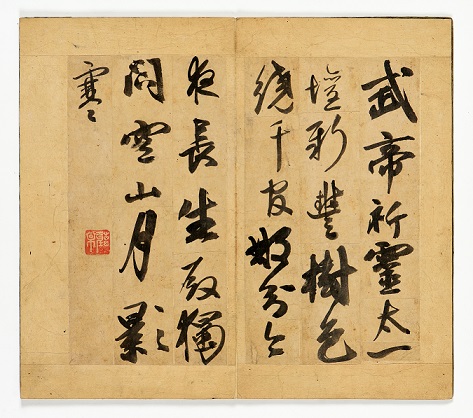 武帝祈靈太一
壇新豐樹色
繞千官那知今
夜長生殿獨
閉空山月影
寒